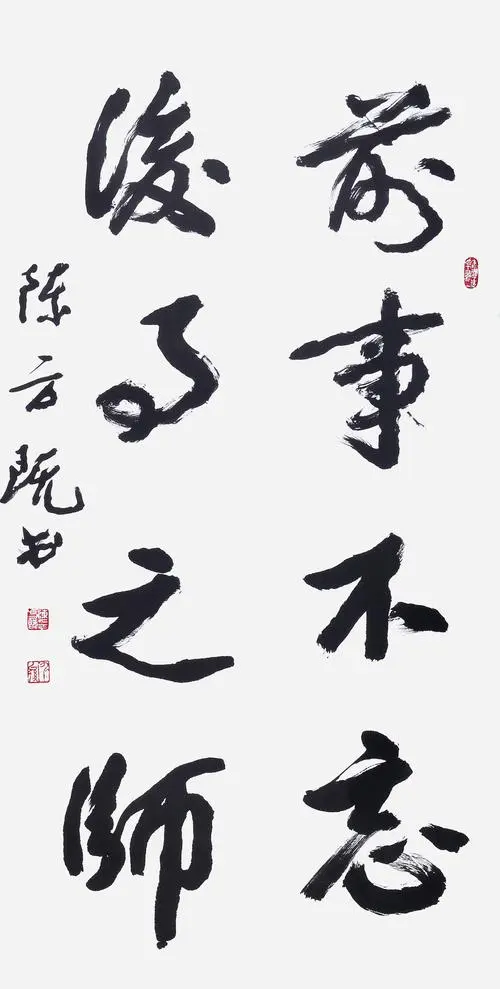 前事不忘
後事之師
陈方既书